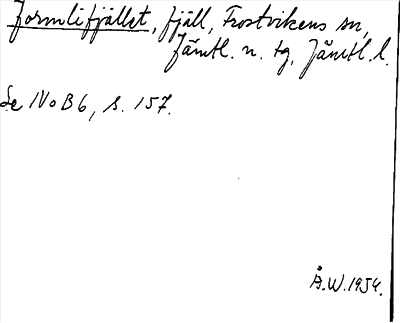 Jormlifjället, fjäll, Frostvikens sn,
Jämtl. n. tg, Jämtl. l.
Se NoB 6, s. 157.
Å.W. 1954.